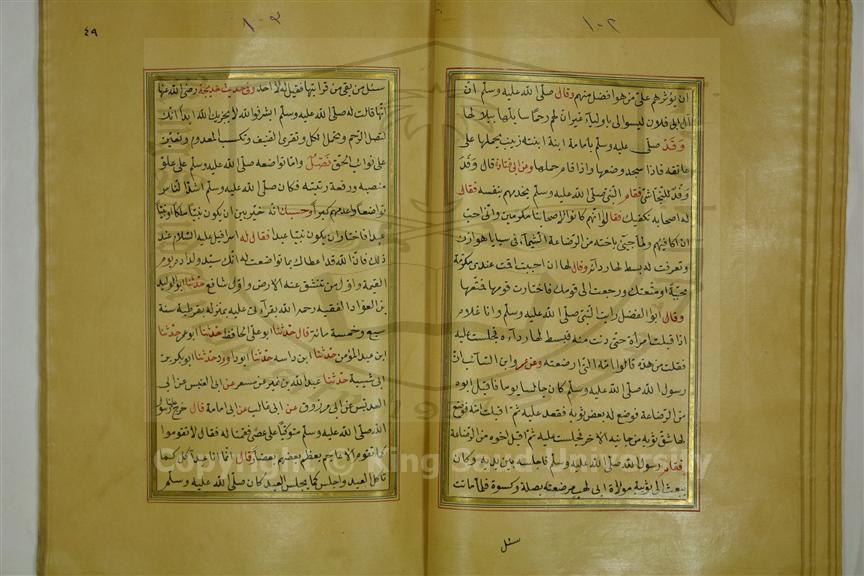 ١٠٢
ان يؤثرهم على من هو افضل منهم وقال صلى الله عليه وسلم ان
آل ابى فلان ليسوا لى باولياء غير ان لهم رحما سابلها ببلالها
وقد صلى عليه وسلم بامامة ابنة ابنته زينب يحملها على
عاتقه فاذا سجد وضعها واذا قام حملها وعن ابى قتادة قال وفد
وفد للنجاشى فقام النبى صلى الله عليه وسلم يخدمهم بنفسه فقال
له اصحابه نكفيك فقال انهم كانوا لاصحابنا مكرمين وانى احب
ان اكافيهم ولما جئ باخته من الرضاعة الشيماء فى سبايا هوازن
وتعرفت له بسط لها رداءه وقال لها ان احببت اقمت عندى مكرمة
محببة او متعتك ورجعت الى قومك فاختارت قومها فمتعها
وقال ابو الفضل رايت النبى صلى الله عليه وسلم وانا غلام
اذا قبلت امرأة حتى دنت منه فبسط لها رداءه فجلست عليه
فقلت من هذه قالوا امه التى ارضعته وعن عمرو ابن السائب ان
رسول الله صلى الله عليه وسلم كان جالسا يوما فاقبل ابوه
من الرضاعة فوضع له بعض ثوبه فقعد عليه ثم اقبلت امه فوضع
لها شق ثوبه من جانبه الآخر فجلست عليه ثم اقبل اخوه من الرضاعة
فقام رسول الله صلى الله عليه وسلم فاجلسه بين يديه وكان
يبعث الى ثويبة مولاة ابى لهب مرضعته بصلة وكسوة فلما ماتت
سئل
٤٩
١٠٣
سئل من بقى من قرابتها فقيل له لا احد وفى حديث خديجة رضى الله عنها
انها قالت له صلى الله عليه وسلم ابشر فوالله لا يخزيك الله ابدا انك
لتصل الرحم وتحمل الكل وتقرى الضيف وتكسب المعدوم وتعين
على نوائب الحق فصل واما تواضعه صلى الله عليه وسلم على علو
منصبه ورفعة رتبته فكان صلى الله عليه وسلم اشد الناس
تواضعا واعدمهم كبرا وحسبك انه خير بين ان يكون نبيا ملكا او نبيا
عبدا فاختار ان يكون نبيا عبدا فقال له اسرافيل عليه السلام عند
ذلك فان الله قد اعطاك بما تواضعت له انك سيد ولد ادم يوم
القيمة واول من تنشق عنه الارض واول شافع حدثنا ابو الوليد
بن العواد الفقيه رحمه الله بقراءتى عليه بمنزله بقرطبة سنة
سبع وخمسة مائة قال حدثنا ابو على الحافظ حدثنا ابو عمر حدثنا
ابن عبد المؤمن حدثنا ابن داسه حدثنا ابو داود حدثنا ابو بكر بن
ابى شيبة حدثنا عبد الله بن نمير عن مسعر عن ابى العنبس عن ابى
العدبس عن ابى مرزوق عن ابى غالب عن ابى امامة قال خرج علينا رسول
الله صلى الله عليه وسلم متوكئا على عصى فقمنا له فقال لا تقوموا
كما تقوم الاعاجم يعظم بعضهم بعضا وقال انا انا عبد آكل كما
ياكل العبد واجلس كما يجلس العبد كان صلى الله عليه وسلم
Copyright © King Saud University